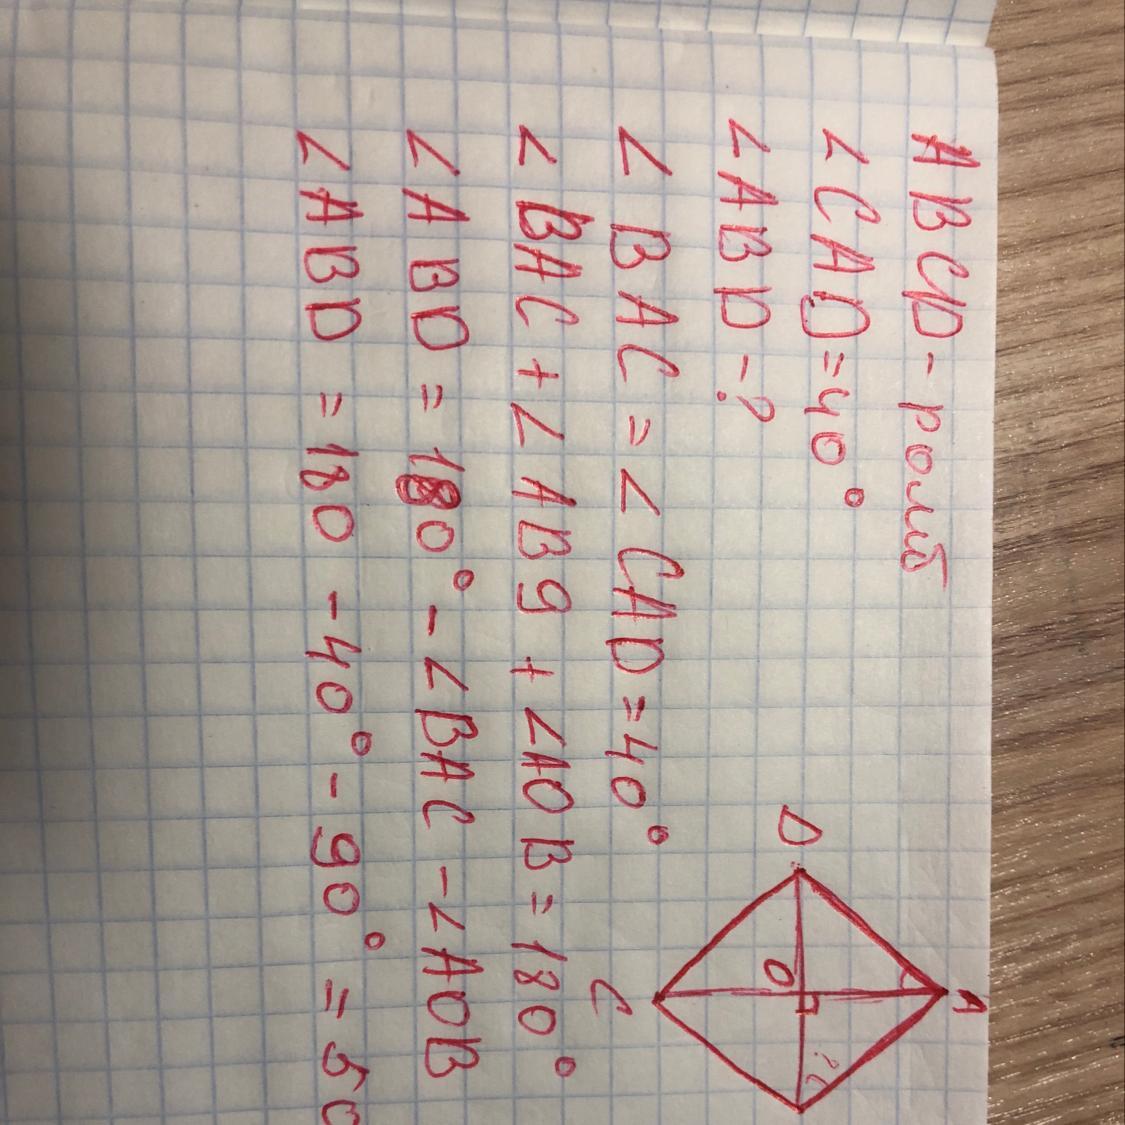 ABCD - ромб
∠CAD = 40°
∠ABD - ?
∠BAC = ∠CAD = 40°
∠BAC + ∠ABд + ∠AOB = 180°
∠ABD = 180° - ∠BAC - ∠AOB
∠ABD = 180 - 40° - 90° = 50
A
D
O
?
C